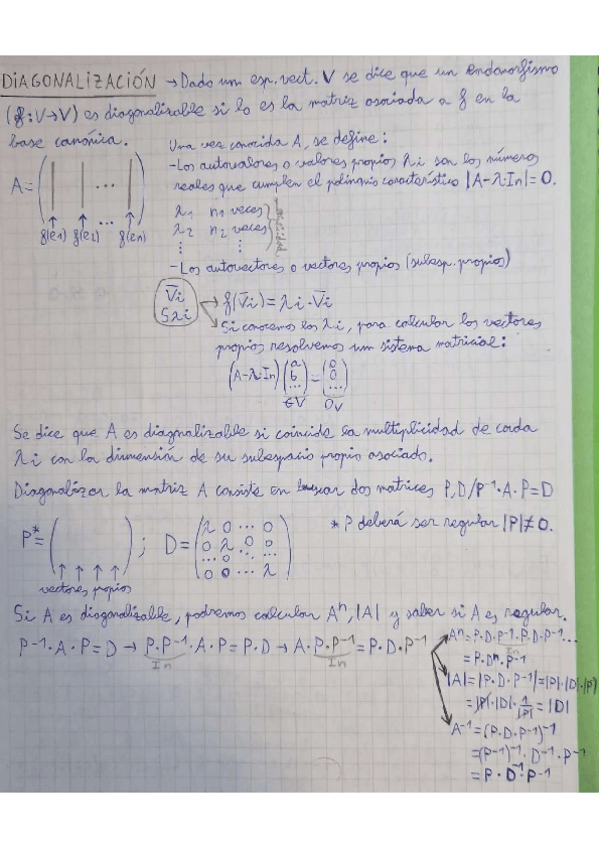 DIAGONALIZACIÓN → Dado un esp. vect. V se dice que un endomorfismo
(f: V→V) es diagonalizable si lo es la matriz asociada a f en la
base canónica.
Una vez conocida A, se define:
A = ( | | ... | )
f(e1) f(e2) ... f(en)
-Los autovalores o valores propios λi son los números
reales que cumplen el polinomio característico |A-λIn|=0.
λ1 n1 veces
λ2 n2 veces
⋮ ⋮
-Los autovectores o vectores propios (subesp. propios)
V̄i
Sλi
→ f(V̄i) = λi·V̄i
→ Si conocemos los λi, para calcular los vectores
propios resolvemos un sistema matricial:
(A-λ·In) (a b ...) = (0 0 ...)
∈V 0v
Se dice que A es diagonalizable si coincide la multiplicidad de cada
λi con la dimensión de su subespacio propio asociado.
Diagonalizar la matriz A consiste en buscar dos matrices P, D / P⁻¹·A·P=D
P* = ( ) ; D = (λ 0 ... 0
0 λ 0 ... 0
... 0 ... ...
0 0 ... λ)
* P deberá ser regular |P|≠0.
vectores propios
Si A es diagonalizable, podremos calcular Aⁿ, |A| y saber si A es regular.
P⁻¹·A·P=D → P·P⁻¹·A·P=P·D → A·P·P⁻¹=P·D·P⁻¹
In In
Aⁿ=P·D·P⁻¹·P·D·P⁻¹...
In
=P·Dⁿ·P⁻¹
|A|=|P·D·P⁻¹|=|P|·|D|·|P⁻¹|
=|P|·|D|·1/|P|=|D|
A⁻¹=(P·D·P⁻¹)⁻¹
=(P⁻¹)⁻¹·D⁻¹·P⁻¹
=P·D⁻¹·P⁻¹